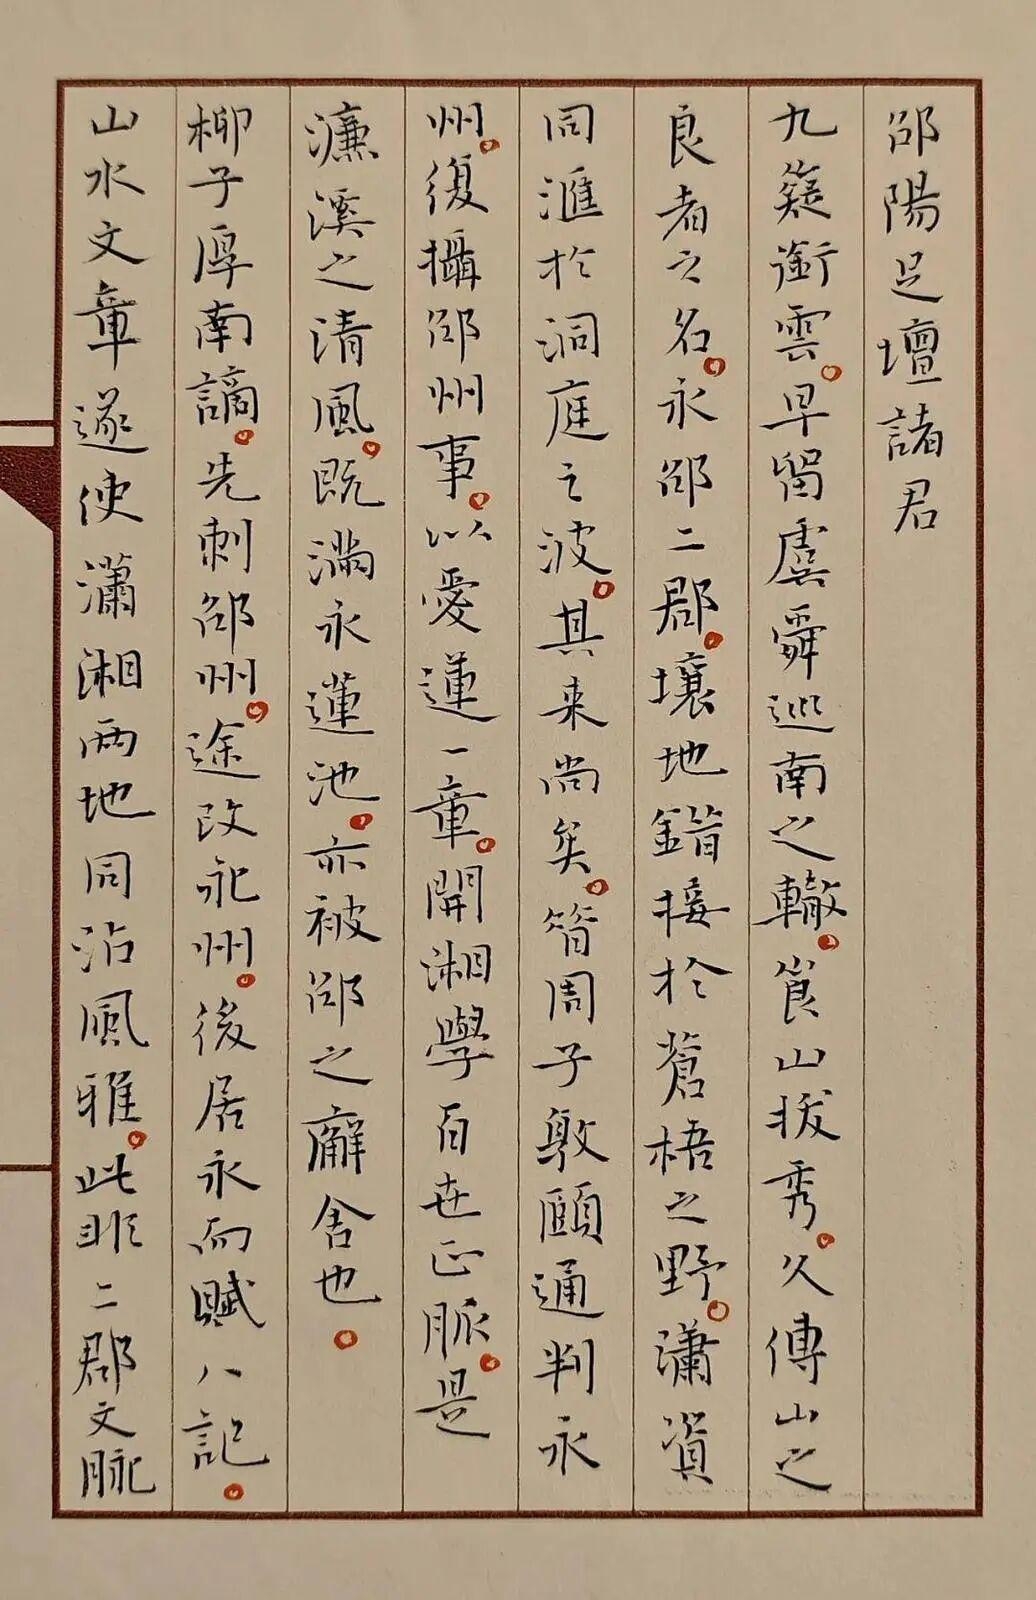 邵陽足壇諸君
九嶷銜雲。早留虞舜巡南之轍。崀山拔秀。久傳山之
良者之名。永邵二郡。壤地錯接於蒼梧之野。瀟資
同滙於洞庭之波。其来尚矣。昔周子敦頤通判永
州。復攝邵州事。以愛蓮一章。開湘學百世正脈。是
濂溪之清風。既滿永蓮池。亦被邵之廨舍也。
柳子厚南謫。先刺邵州。途改永州。後居永而賦八記。
山水文章遂使瀟湘兩地同沾風雅。此非二郡文脈